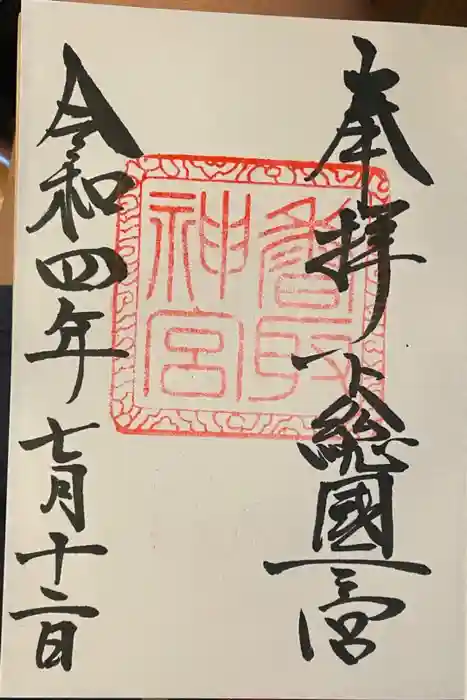 奉拝下総國一宮
香取神宮
令和四年七月十二日